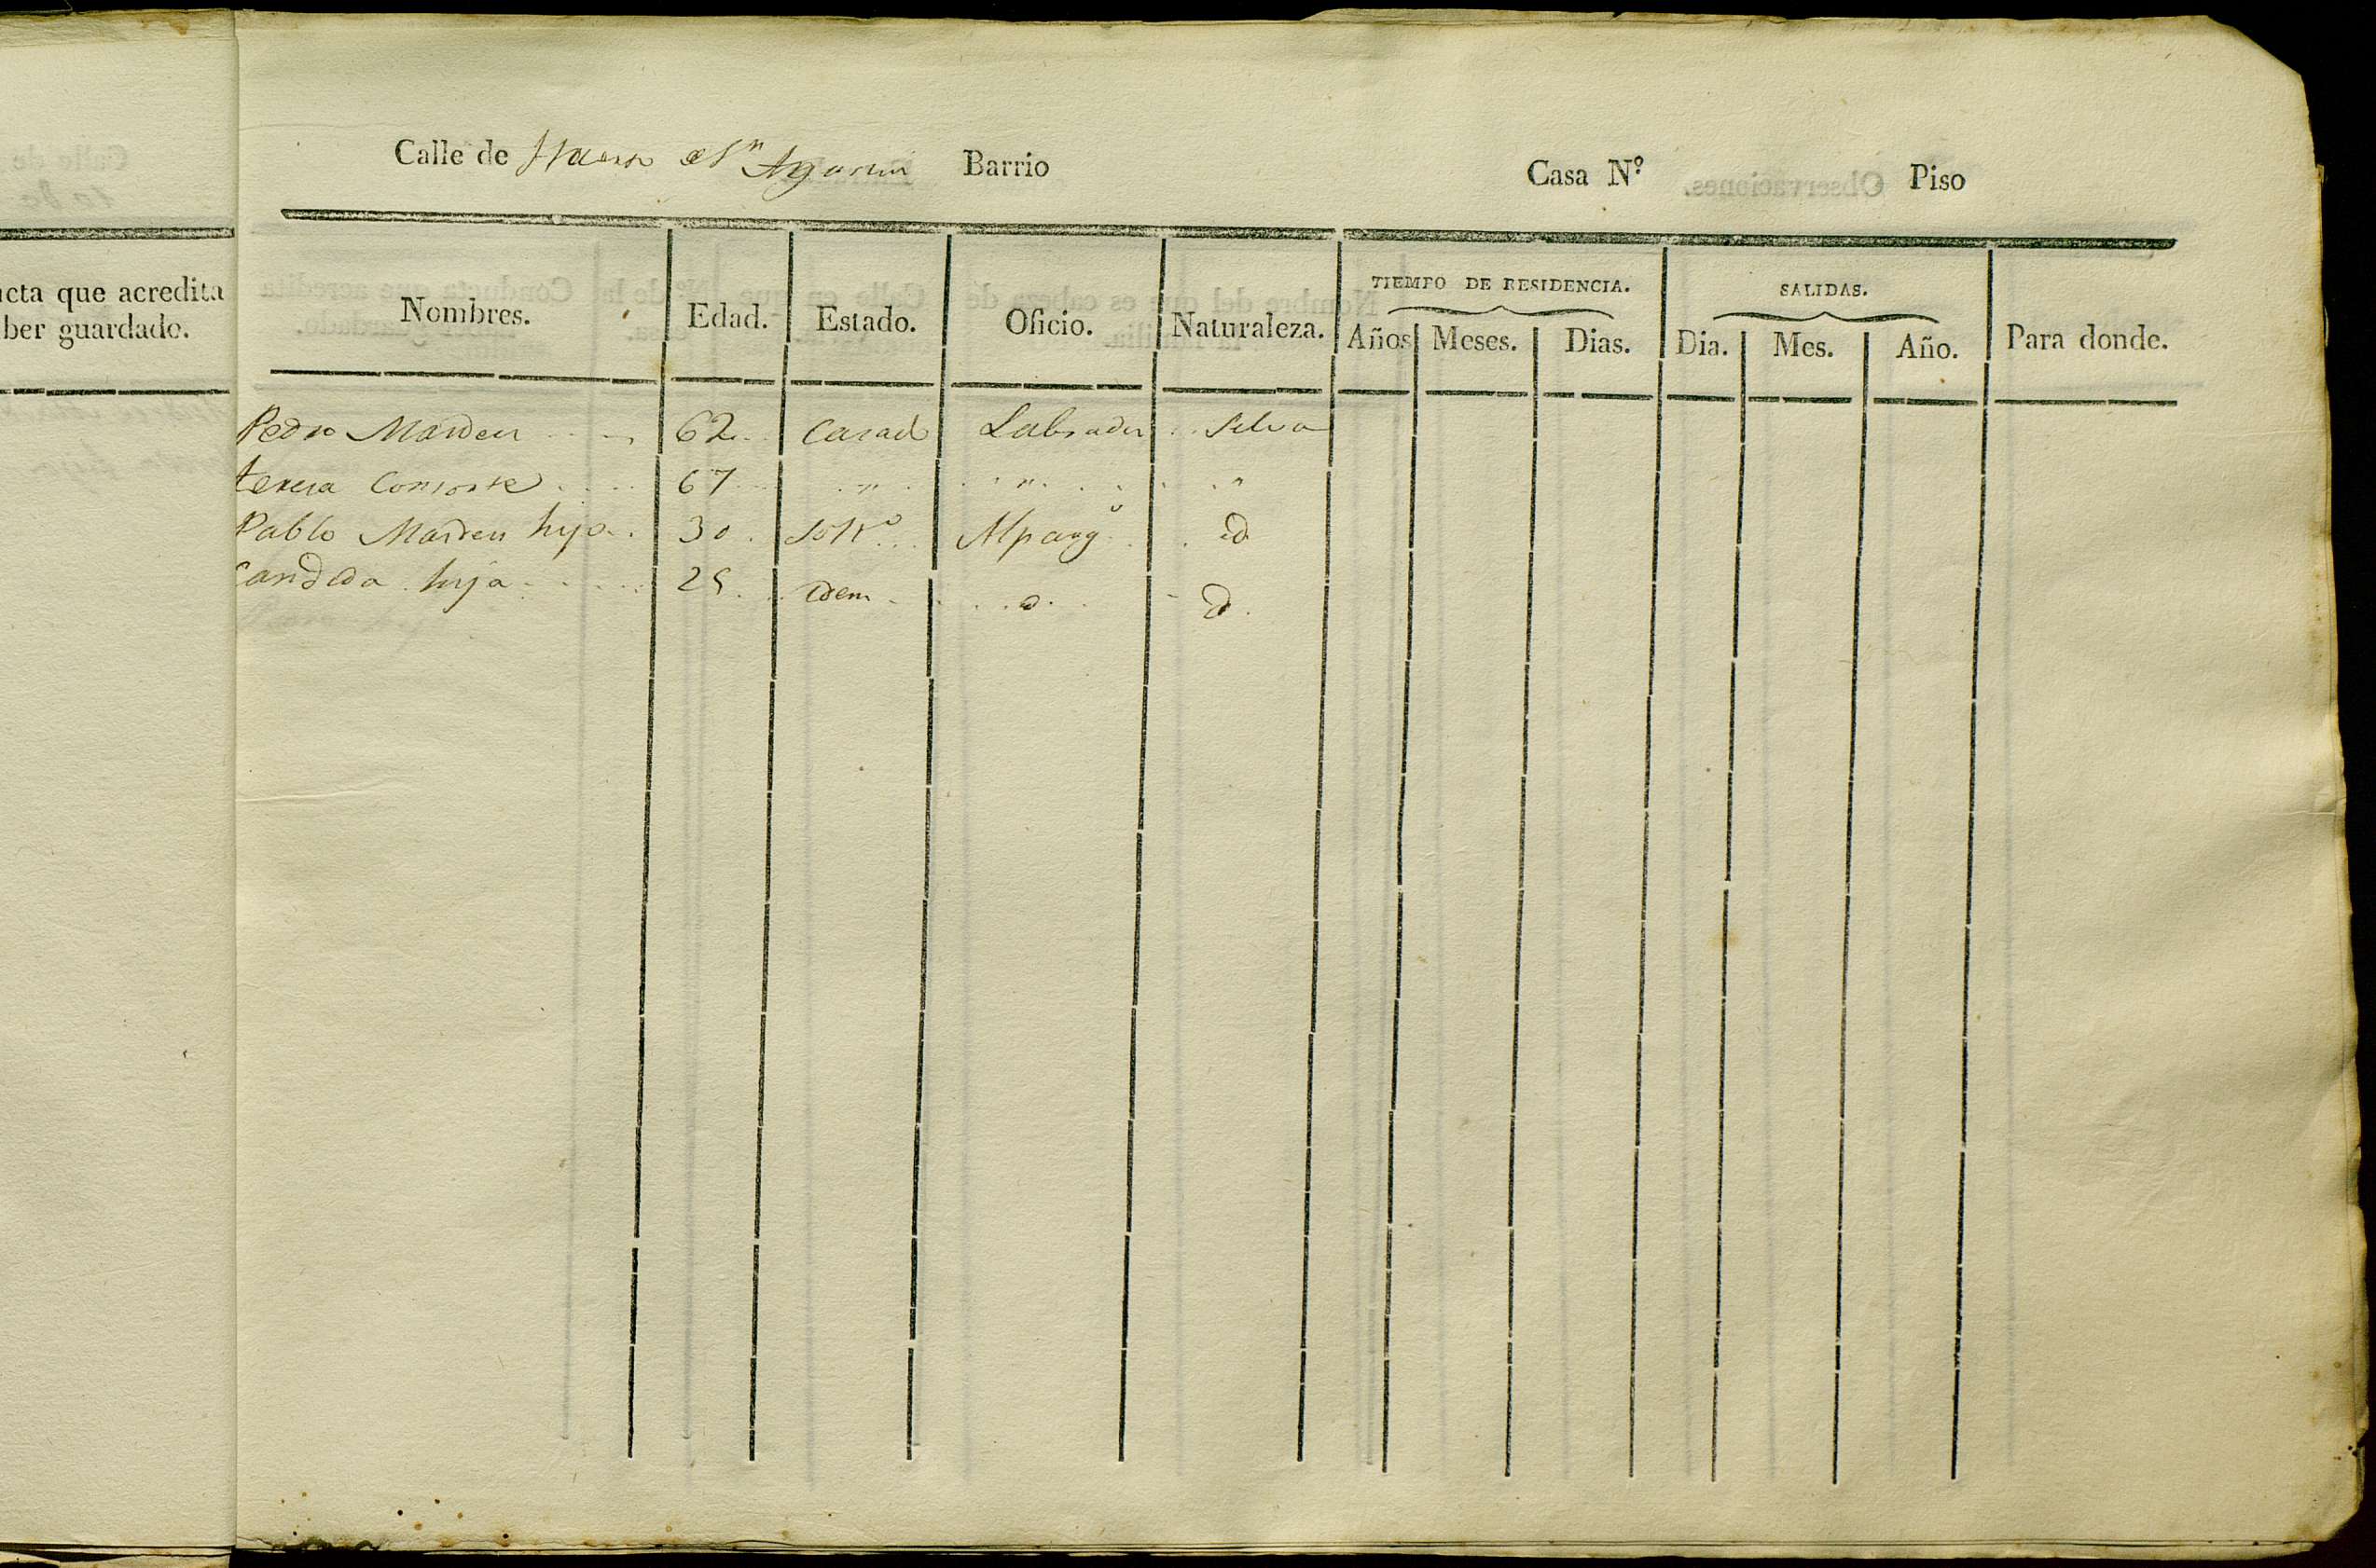 Calle de Sn Agustin Barrio Casa N.º Piso
acta que acredita
ber guardado.
Nombres. Edad. Estado. Oficio. Naturaleza. TIEMPO DE RESIDENCIA. SALIDAS. Para donde.
Años Meses. Dias. Dia. Mes. Año.
Pedro 62 Casado Labrador Selva
teresa Consorte 67 " " "
Pablo hijo 30 Solto Alparg id
Candida hija 25 idem id id